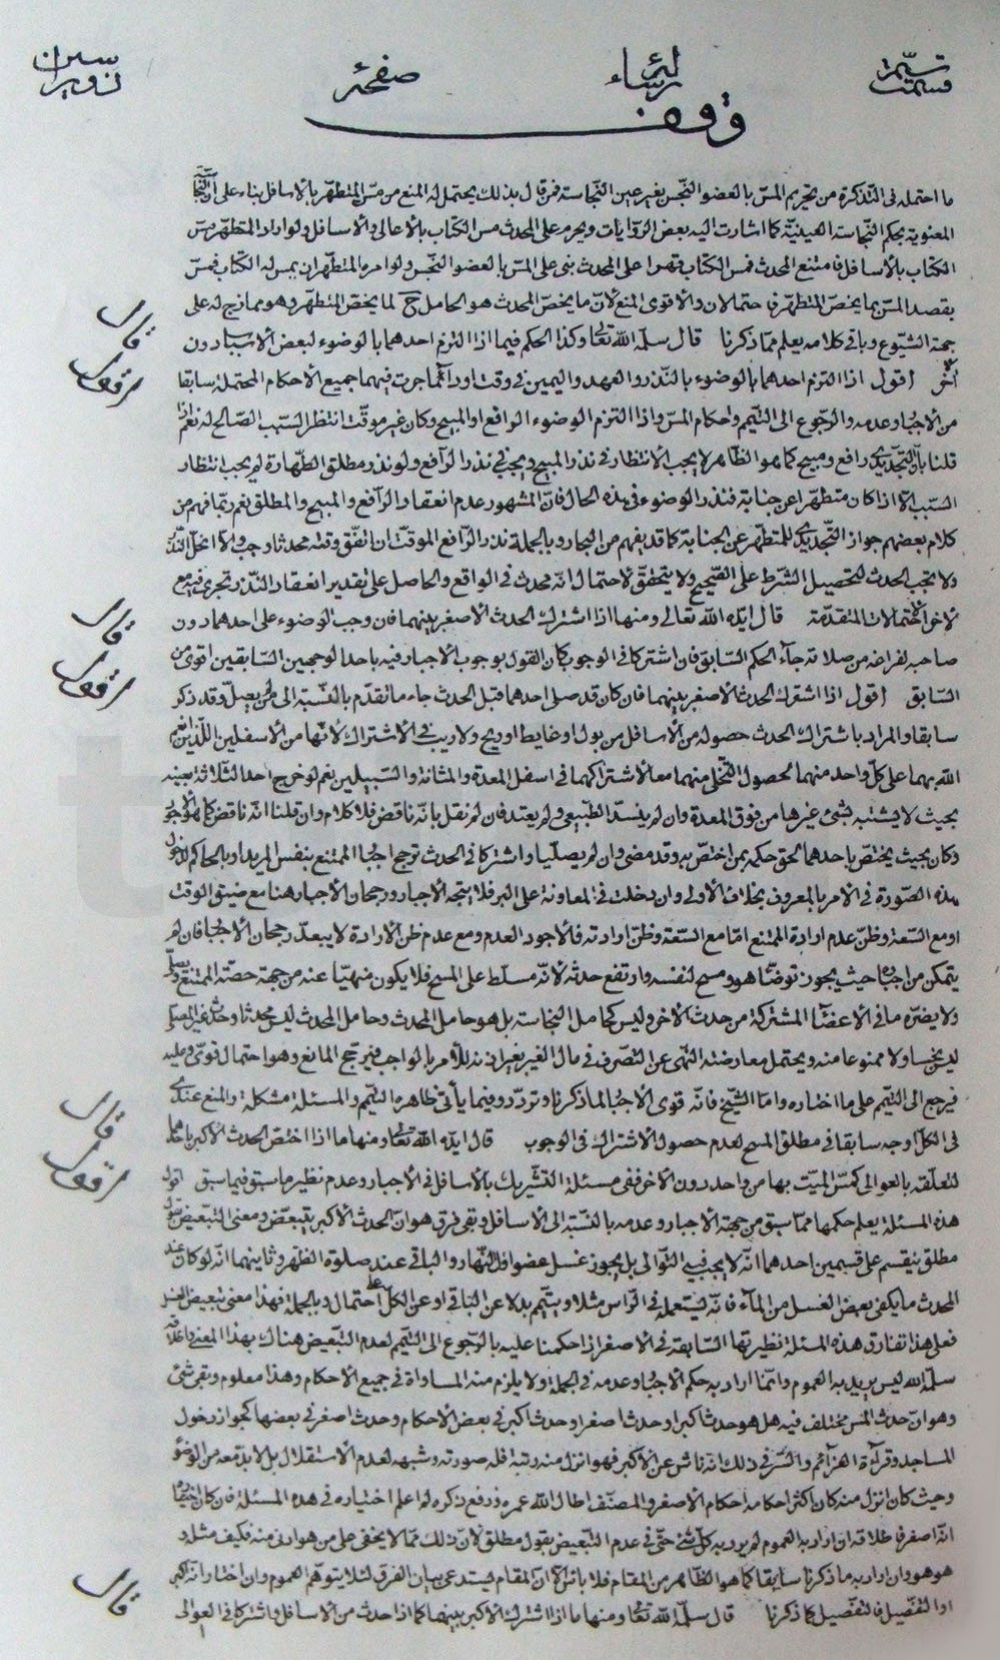 صفحة
وقف
ما احتمله فى التذكرة من تحريم المس بالعضو النجس بغير عين النجاسة فمن قال بذلك يحتمل له المنع من مس المتطهر بالاسافل بناء على ان
المعنوية بحكم النجاسة العينية كما اشارت اليه بعض الروايات ويحرم على المحدث مس الكتاب بالاعالى والاسافل ولو اراد المتطهر مس
الكتاب بالاسافل فامتنع المحدث فمس الكتاب قهرا على المحدث بنى على المس بالعضو النجس ولو امره المتطهر ان يمس له الكتاب فمس
بقصد المس بما يخص المتطهر فاحتمالان والاقوى المنع لان ما يخص المحدث هو الحامل ح لما يخص المتطهر وهو ممازج له على
جهة الشيوع وباقى كلامه يعلم مما ذكرنا قال سلمه الله تعالى وكذا الحكم فيما اذا التزم احدهما بالوضوء لبعض الاسباب دون
قال
اخر اقول اذا التزم احدهما بالوضوء بالنذر والعهد واليمين فى وقت او دائما جرت فيهما جميع الاحكام المحتملة سابقا
اقول
من الاجبار وعدمه والرجوع الى التيمم واحكام المس واذا التزم الوضوء الرافع او المبيح وكان غير موقت انتظر السبب الصالح له نعم اذا
قلنا بان التجديدى رافع ومبيح كما هو الظاهر لا يجب الانتظار فى نذر المبيح ويجب فى نذر الرافع ولو نذر مطلق الطهارة لم يجب انتظار
السبب الا اذا كان متطهرا عن جنابة فنذر الوضوء فى هذه الحال فان المشهور عدم انعقاد الرافع والمبيح والمطلق نعم ربما فهم من
كلام بعضهم جواز التجديدى للمتطهر عن الجنابة كما قد يفهم من البحار وبالجملة نذر الرافع الموقت ان اتفق وقته محدثا وجب والا انحل النذر
ولا يجب الحدث لتحصيل الشرط على الصحيح ولا يتحقق لاحتمال انه محدث فى الواقع والحاصل على تقدير انعقاد النذر تجرى فيه مع
الاخر الاحتمالات المتقدمة قال ايده الله تعالى ومنها اذا اشترك الحدث الاصغر بينهما فان وجب الوضوء على احدهما دون
قال
صاحبه لفراغه من صلاته جاء الحكم السابق فان اشتركا فى الوجوب كان القول بوجوب الاجبار فيه باحد الوجهين السابقين اقوى من
السابق اقول اذا اشترك الحدث الاصغر بينهما فان كان قد صلى احدهما قبل الحدث جاء ما تقدم بالنسبة الى من لم يصل وقد ذكر
اقول
سابقا والمراد باشتراك الحدث حصوله من الاسافل من بول او غايط او ريح ولا ريب فى الاشتراك لانها من الاسفلين اللذين انعم
الله بهما على كل واحد منهما لحصول التخلى منهما معا لاشتراكهما فى اسفل المعدة والمثانة والسبيلين نعم لو خرج احد الثلاثة بعينه
بحيث لا يشتبه بشئ غيرها من فوق المعدة وان لم ينسد الطبيعى ولم يعتد فان لم نقل بانه ناقض فلا كلام وان قلنا انه ناقض كما هو الاجود
وكان بحيث يختص باحدهما الحق حكمه بمن اختص به وقد مضى وان لم يصليا واشتركا فى الحدث ترجح اجبار الممتنع بنفس المريد او بالحاكم لدخول
هذه الصورة فى الامر بالمعروف بخلاف الاولى وان دخلت فى المعاونة على البر فلا يتجه الاجبار ورجحان الاجبار هنا مع ضيق الوقت
او مع السعة وظن عدم ارادة الممتنع اما مع السعة وظن ارادته فالاجود العدم ومع عدم ظن الارادة لا يبعد رجحان الاجبار فان لم
يتمكن من اجباره حيث يجوز توضأ هو ومسح لنفسه وارتفع حدثه لانه مسلط على المسح فلا يكون منهيا عنه من جهة حصة الممتنع
ولا يضره ما فى الاعضاء المشتركة من حدث الاخر وليس كحامل النجاسة بل هو حامل المحدث وحامل المحدث ليس محدثا وحدث غير المصلى
ليس نجسا ولا ممنوعا منه ويحتمل معارضته النهى عن التصرف فى مال الغير بغير اذنه للامر بالواجب فيرجح المانع وهو احتمال قوى وعليه
فيرجع الى التيمم على ما اختاره واما الشيخ فانه قوى الاجبار لما ذكرنا وتردد وفيما يأتى ظاهره التيمم والمسئلة مشكلة والمنع عندى
فى الكل اوجه سابقا فى مطلق المسح لعدم حصول الاشتراك فى الوجوب قال ايده الله تعالى ومنها ما اذا اختص الحدث الاكبر باحدهما
قال
لتعلقه بالعوالى كمس الميت بها من واحد دون الاخر ففى مسئلة التشريك بالاسافل فى الاجبار وعدم نظير ما سبق فيما سبق اقول
اقول
هذه المسئلة يعلم حكمها مما سبق من جهة الاجبار وعدمه بالنسبة الى الاسافل وبقى فرق هو ان الحدث الاكبر يتبعض ومعنى التبعض
مطلق ينقسم على قسمين احدهما انه لا يجب فيه التوالى بل يجوز غسل عضو اول النهار والباقى عند صلوة الظهر وثانيهما انه لو كان عند
المحدث ما يكفى بعض الغسل من الماء فانه يستعمله فى الراس مثلا ويتيمم بدلا عن الباقى او عن الكل على احتمال وبالجملة فهذا معنى تبعيض الغسل
فعلى هذا تفارق هذه المسئلة نظيرتها السابقة فى الاصغر اذا حكمنا عليه بالرجوع الى التيمم لعدم التبعيض هناك بهذا المعنى واطلاقه
سلمه الله ليس يريد به العموم وانما اراد به حكم الاجبار وعدمه فى الجملة ولا يلزم منه المساواة فى جميع الاحكام وهذا معلوم وبقى شئ
وهو ان حدث المس مختلف فيه هل هو حدث اكبر او حدث اصغر او حدث اكبر فى بعض الاحكام وحدث اصغر فى بعضها كجواز دخول
المساجد وقراءة العزائم والسر فى ذلك انه ناش عن الاكبر فهو انزل منه رتبة فله صورته وشبهه لعدم الاستقلال بل لا بد معه من الوضوء
وحيث كان انزل منه كان باكثر احكامه احكام الاصغر والمصنف اطال الله عمره ورفع ذكره لم اعلم اختياره فى هذه المسئلة فان كان اختياره
انه اصغر فاطلاقه ان اراد به العموم لم يرد به كل شئ حتى فى عدم التبعيض بقول مطلق لان ذلك مما لا يخفى على من هو ادنى منه فكيف مثله
هو هو وان اراد به ما ذكرنا سابقا كما هو الظاهر من المقام فلا باس الا ان المقام يستدعى بيان الفرق لئلا يتوهم العموم وان اختار انه اكبر
او التفصيل فالتفصيل كما ذكرنا قال سلمه الله تعالى ومنها ما اذا اشترك الاكبر بينهما كما اذا حدث من الاسافل واشتركا فى العوالى
قال